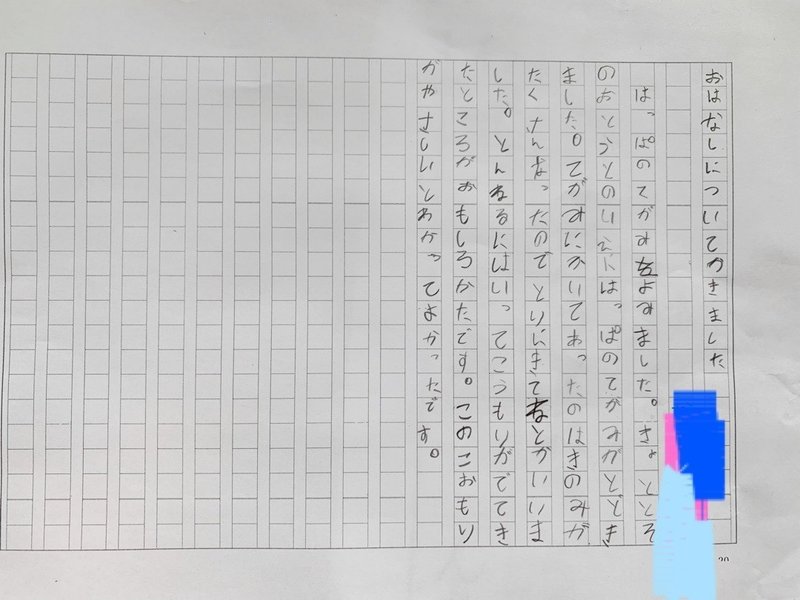 おはなしについてかきました
はっぱのてがみをよみました。きょととそ
のおとうとのいえにはっぱのてがみがとどき
ました。てがみにかいてあったのはきのみが
たくさんなったのでとりにきてねとかいいま
した。とんねるにはいってこうもりがでてき
たところがおもしろかたです。このこおもり
がやさしいとわかってよかったです。
20